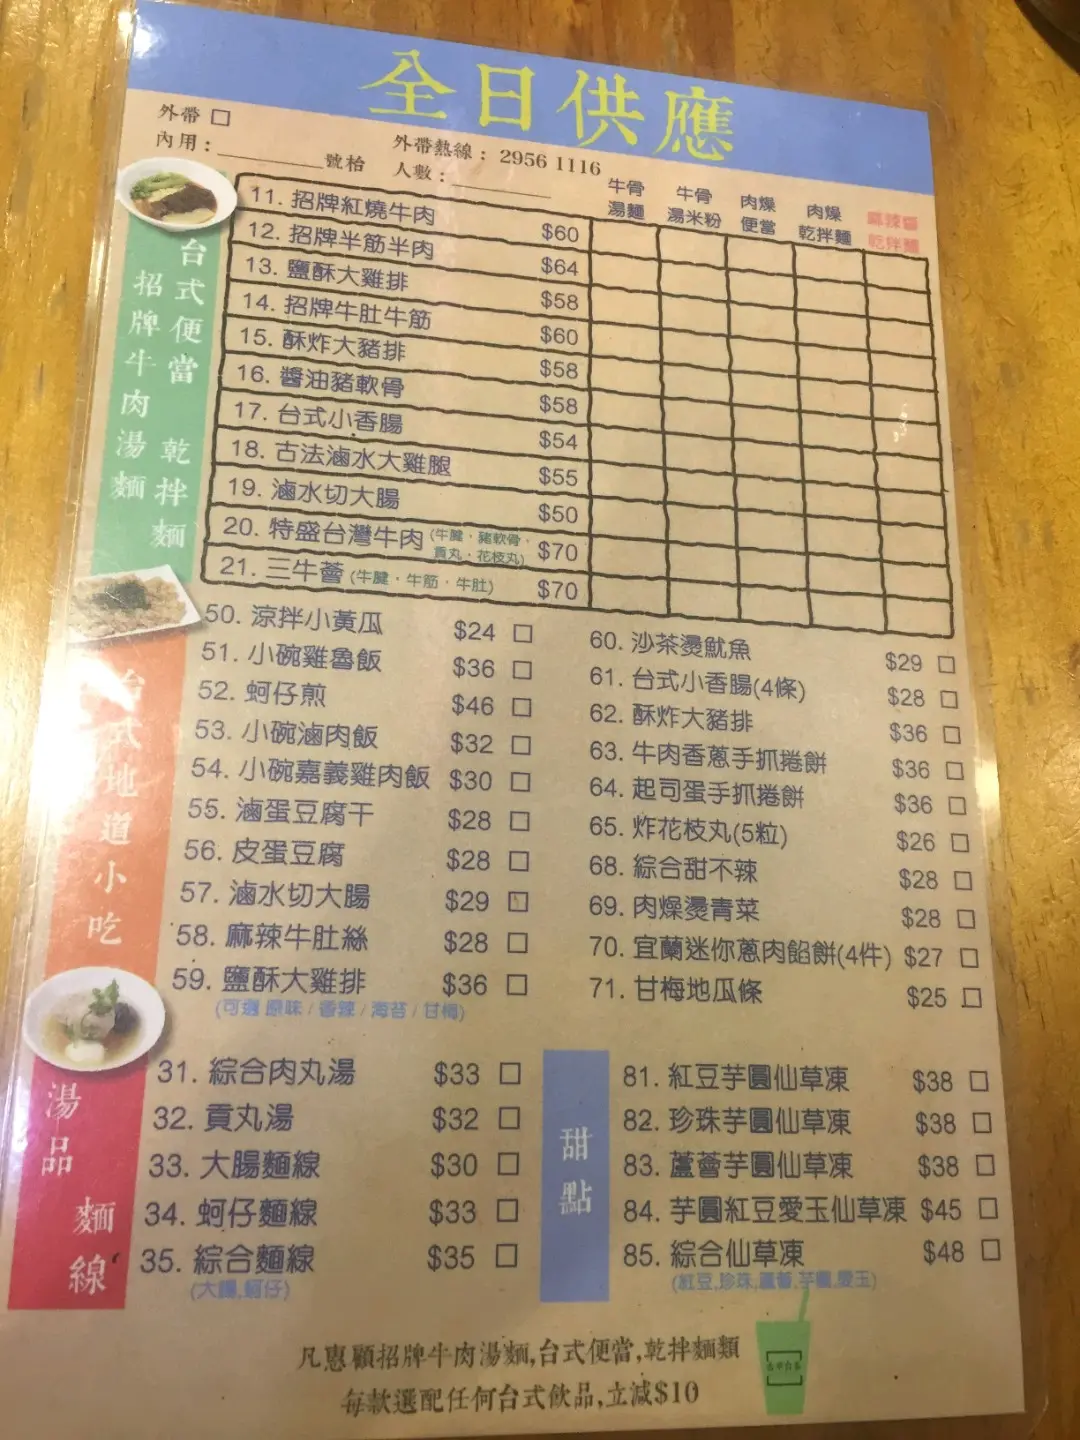 全日供應
外帶 □
外帶熱線：2956 1116
內用：________號枱 人數：________
牛骨湯麵
牛骨湯米粉
肉燥便當
肉燥乾拌麵
麻辣醬乾拌麵
台式便當 乾拌麵
招牌牛肉湯麵
11. 招牌紅燒牛肉 $60
12. 招牌半筋半肉 $64
13. 鹽酥大雞排 $58
14. 招牌牛肚牛筋 $60
15. 酥炸大豬排 $58
16. 醬油豬軟骨 $58
17. 台式小香腸 $54
18. 古法滷水大雞腿 $55
19. 滷水切大腸 $50
20. 特盛台灣牛肉 (牛腱·豬軟骨·貢丸·花枝丸) $70
21. 三牛薈 (牛腱·牛筋·牛肚) $70
台式地道小吃
50. 涼拌小黃瓜 $24 □
51. 小碗雞魯飯 $36 □
52. 蚵仔煎 $46 □
53. 小碗滷肉飯 $32 □
54. 小碗嘉義雞肉飯 $30 □
55. 滷蛋豆腐干 $28 □
56. 皮蛋豆腐 $28 □
57. 滷水切大腸 $29 □
58. 麻辣牛肚絲 $28 □
59. 鹽酥大雞排 $36 □
(可選 原味 / 香辣 / 海苔 / 甘梅)
60. 沙茶燙魷魚 $29 □
61. 台式小香腸(4條) $28 □
62. 酥炸大豬排 $36 □
63. 牛肉香蔥手抓捲餅 $36 □
64. 起司蛋手抓捲餅 $36 □
65. 炸花枝丸(5粒) $26 □
68. 綜合甜不辣 $28 □
69. 肉燥燙青菜 $28 □
70. 宜蘭迷你蔥肉餡餅(4件) $27 □
71. 甘梅地瓜條 $25 □
湯品 麵線
31. 綜合肉丸湯 $33 □
32. 貢丸湯 $32 □
33. 大腸麵線 $30 □
34. 蚵仔麵線 $33 □
35. 綜合麵線 $35 □
(大腸,蚵仔)
甜點
81. 紅豆芋圓仙草凍 $38 □
82. 珍珠芋圓仙草凍 $38 □
83. 蘆薈芋圓仙草凍 $38 □
84. 芋圓紅豆愛玉仙草凍 $45 □
85. 綜合仙草凍 $48 □
(紅豆,珍珠,蘆薈,芋圓,愛玉)
凡惠顧招牌牛肉湯麵,台式便當,乾拌麵類
每款選配任何台式飲品,立減$10